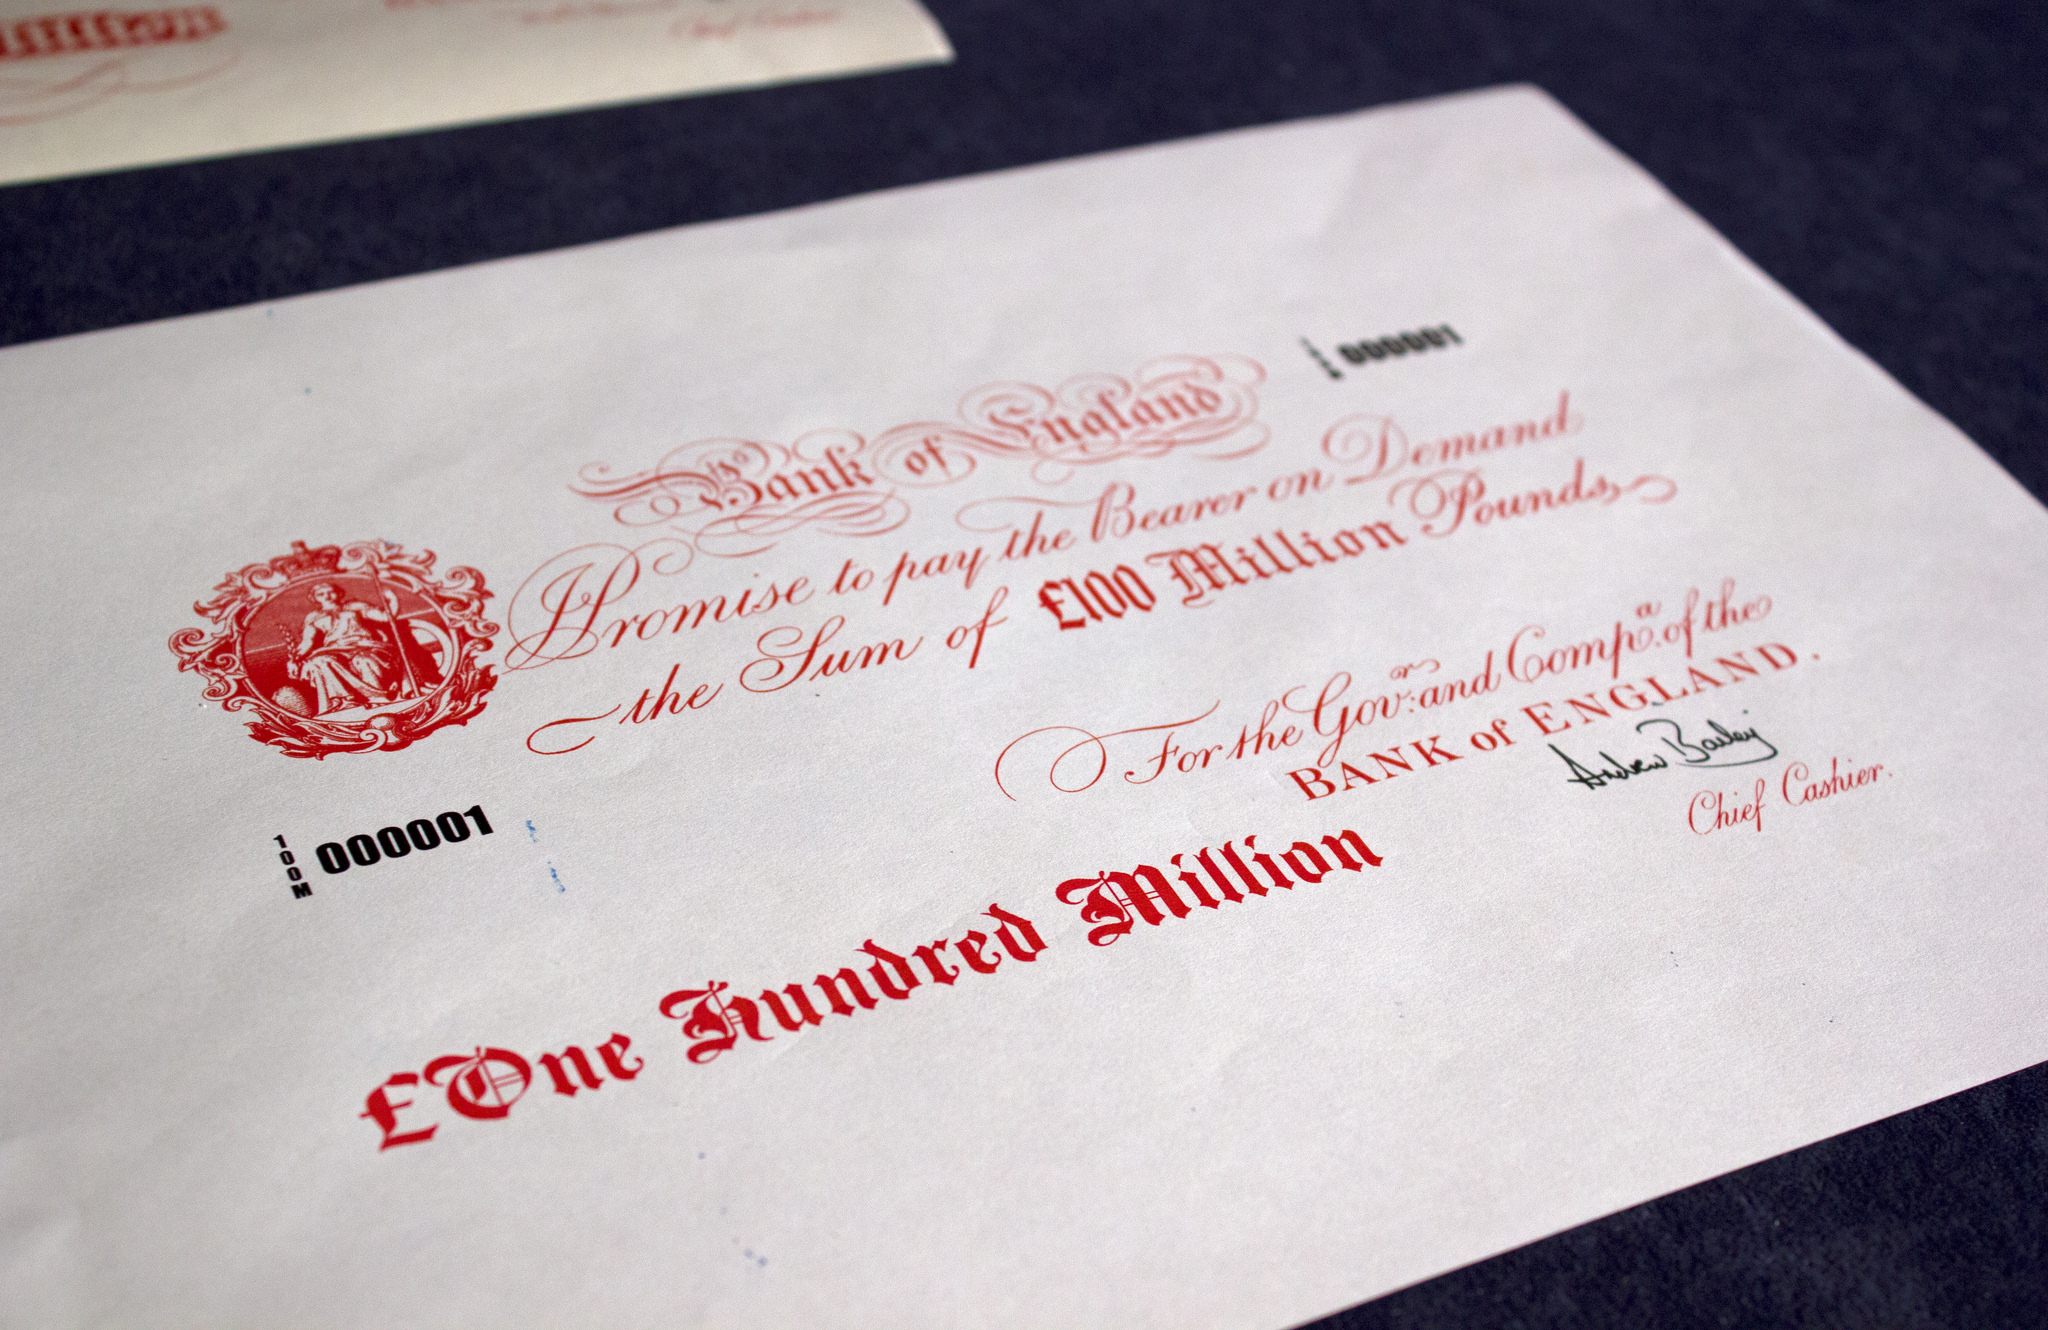 Chief Cashier
000001
Bank of England
Promise to pay the Bearer on Demand
the Sum of £100 Million Pounds
For the Govr: and Compa. of the
BANK of ENGLAND.
Andrew Bailey
Chief Cashier.
100M 000001
£One Hundred Million